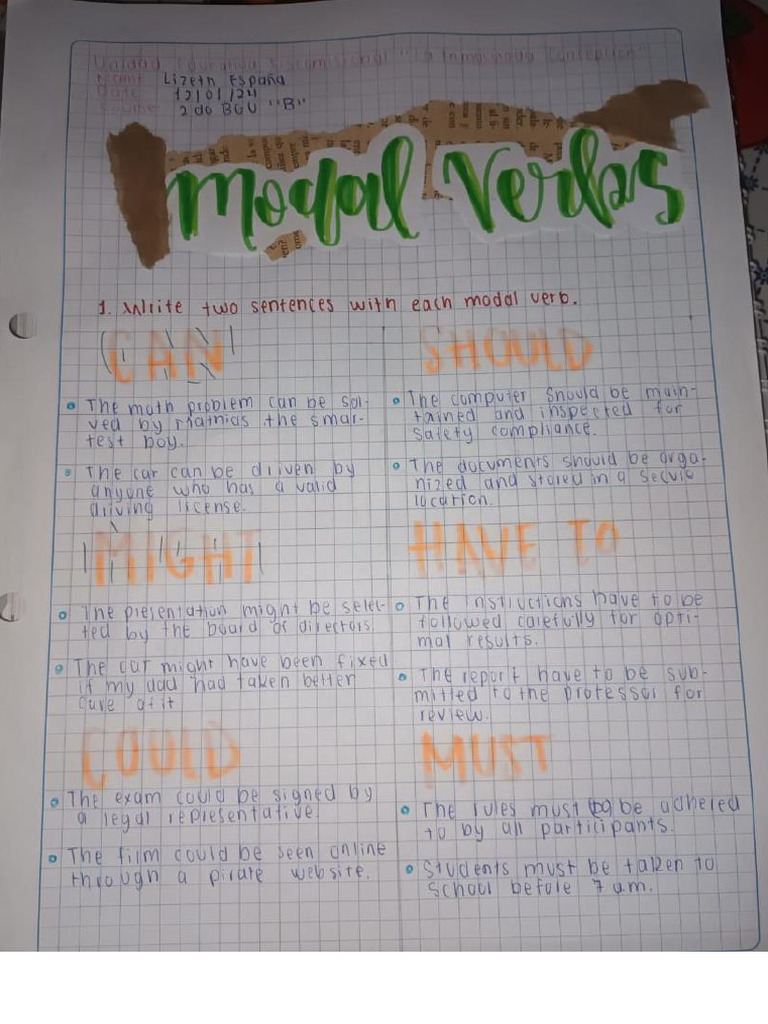 Unidad Educativa Fiscomisional "La Inmaculada Concepción"
Name: Lizeth España
Date: 12/01/24
2do BGU "B"
Modal Verbs
1. Write two sentences with each modal verb.
CAN
• The math problem can be sol-
ved by Mathias the smar-
test boy.
• The car can be driven by
anyone who has a valid
driving license.
SHOULD
• The computer should be main-
tained and inspected for
safety compliance.
• The documents should be orga-
nized and stored in a secure
location.
MIGHT
• The presentation might be selec-
ted by the board of directors.
• The car might have been fixed
if my dad had taken better
care of it
HAVE TO
• The instructions have to be
followed carefully for opti-
mal results.
• The report have to be sub-
mitted to the professor for
review.
COULD
• The exam could be signed by
a legal representative.
• The film could be seen online
through a pirate website.
MUST
• The rules must be adhered
to by all participants.
• Students must be taken to
school before 7 am.